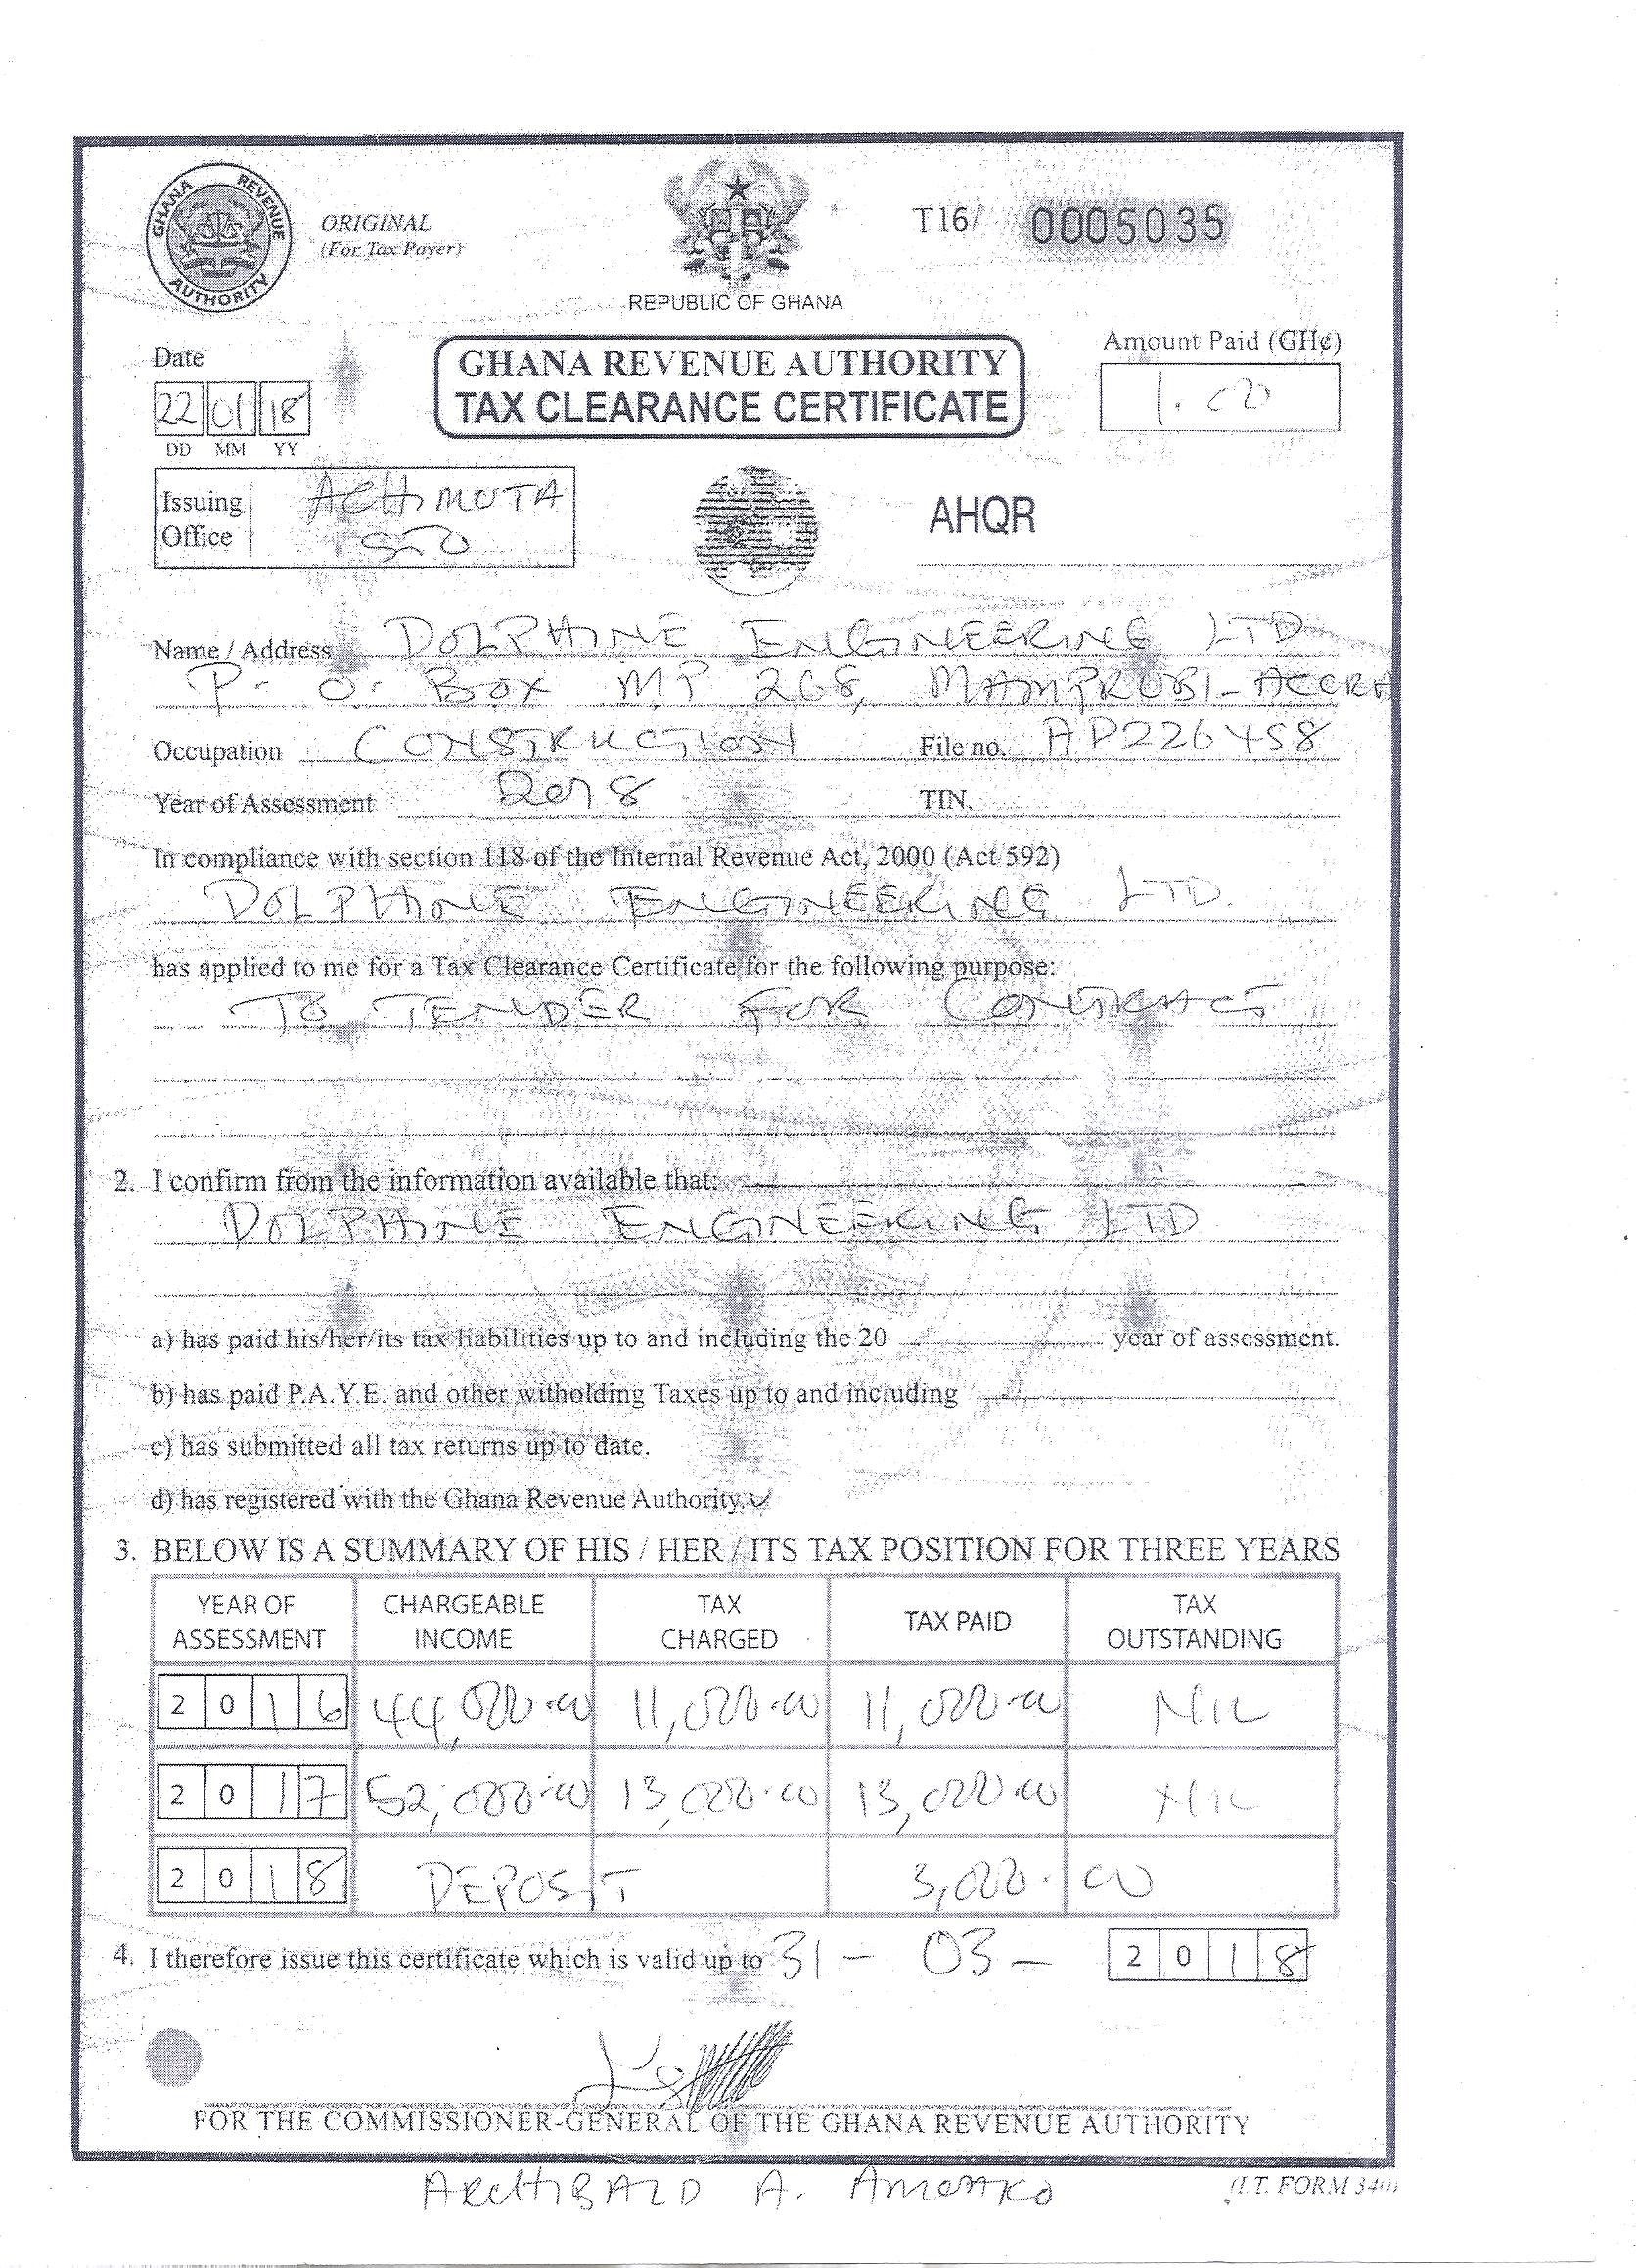 GHANA REVENUE AUTHORITY
ORIGINAL
(For Tax Payer)
REPUBLIC OF GHANA
T16/ 0005035
Date
22 01 18
DD MM YY
GHANA REVENUE AUTHORITY
TAX CLEARANCE CERTIFICATE
Amount Paid (GH¢)
1.00
Issuing Office ACHIMOTA
STO
AHQR
Name / Address DOLPHINE ENGINEERING LTD
P. O. BOX MP 268, MAMPROBI-ACCRA
Occupation CONSTRUCTION File no. AP226458
Year of Assessment 2018 TIN.
In compliance with section 118 of the Internal Revenue Act, 2000 (Act 592)
DOLPHINE ENGINEERING LTD.
has applied to me for a Tax Clearance Certificate for the following purpose:
TO TENDER FOR CONTRACT
2. I confirm from the information available that:
DOLPHINE ENGINEERING LTD
a) has paid his/her/its tax liabilities up to and including the 20 year of assessment.
b) has paid P.A.Y.E. and other witholding Taxes up to and including
c) has submitted all tax returns up to date.
d) has registered with the Ghana Revenue Authority. ✓
3. BELOW IS A SUMMARY OF HIS / HER / ITS TAX POSITION FOR THREE YEARS
YEAR OF ASSESSMENT CHARGEABLE INCOME TAX CHARGED TAX PAID TAX OUTSTANDING
2016 44,000.00 11,000.00 11,000.00 NIL
2017 52,000.00 13,000.00 13,000.00 NIL
2018 DEPOSIT 3,000.00
4. I therefore issue this certificate which is valid up to 31 - 03 - 2018
FOR THE COMMISSIONER-GENERAL OF THE GHANA REVENUE AUTHORITY
ARCHIBALD A. AMOAKO
(I.T. FORM 340)